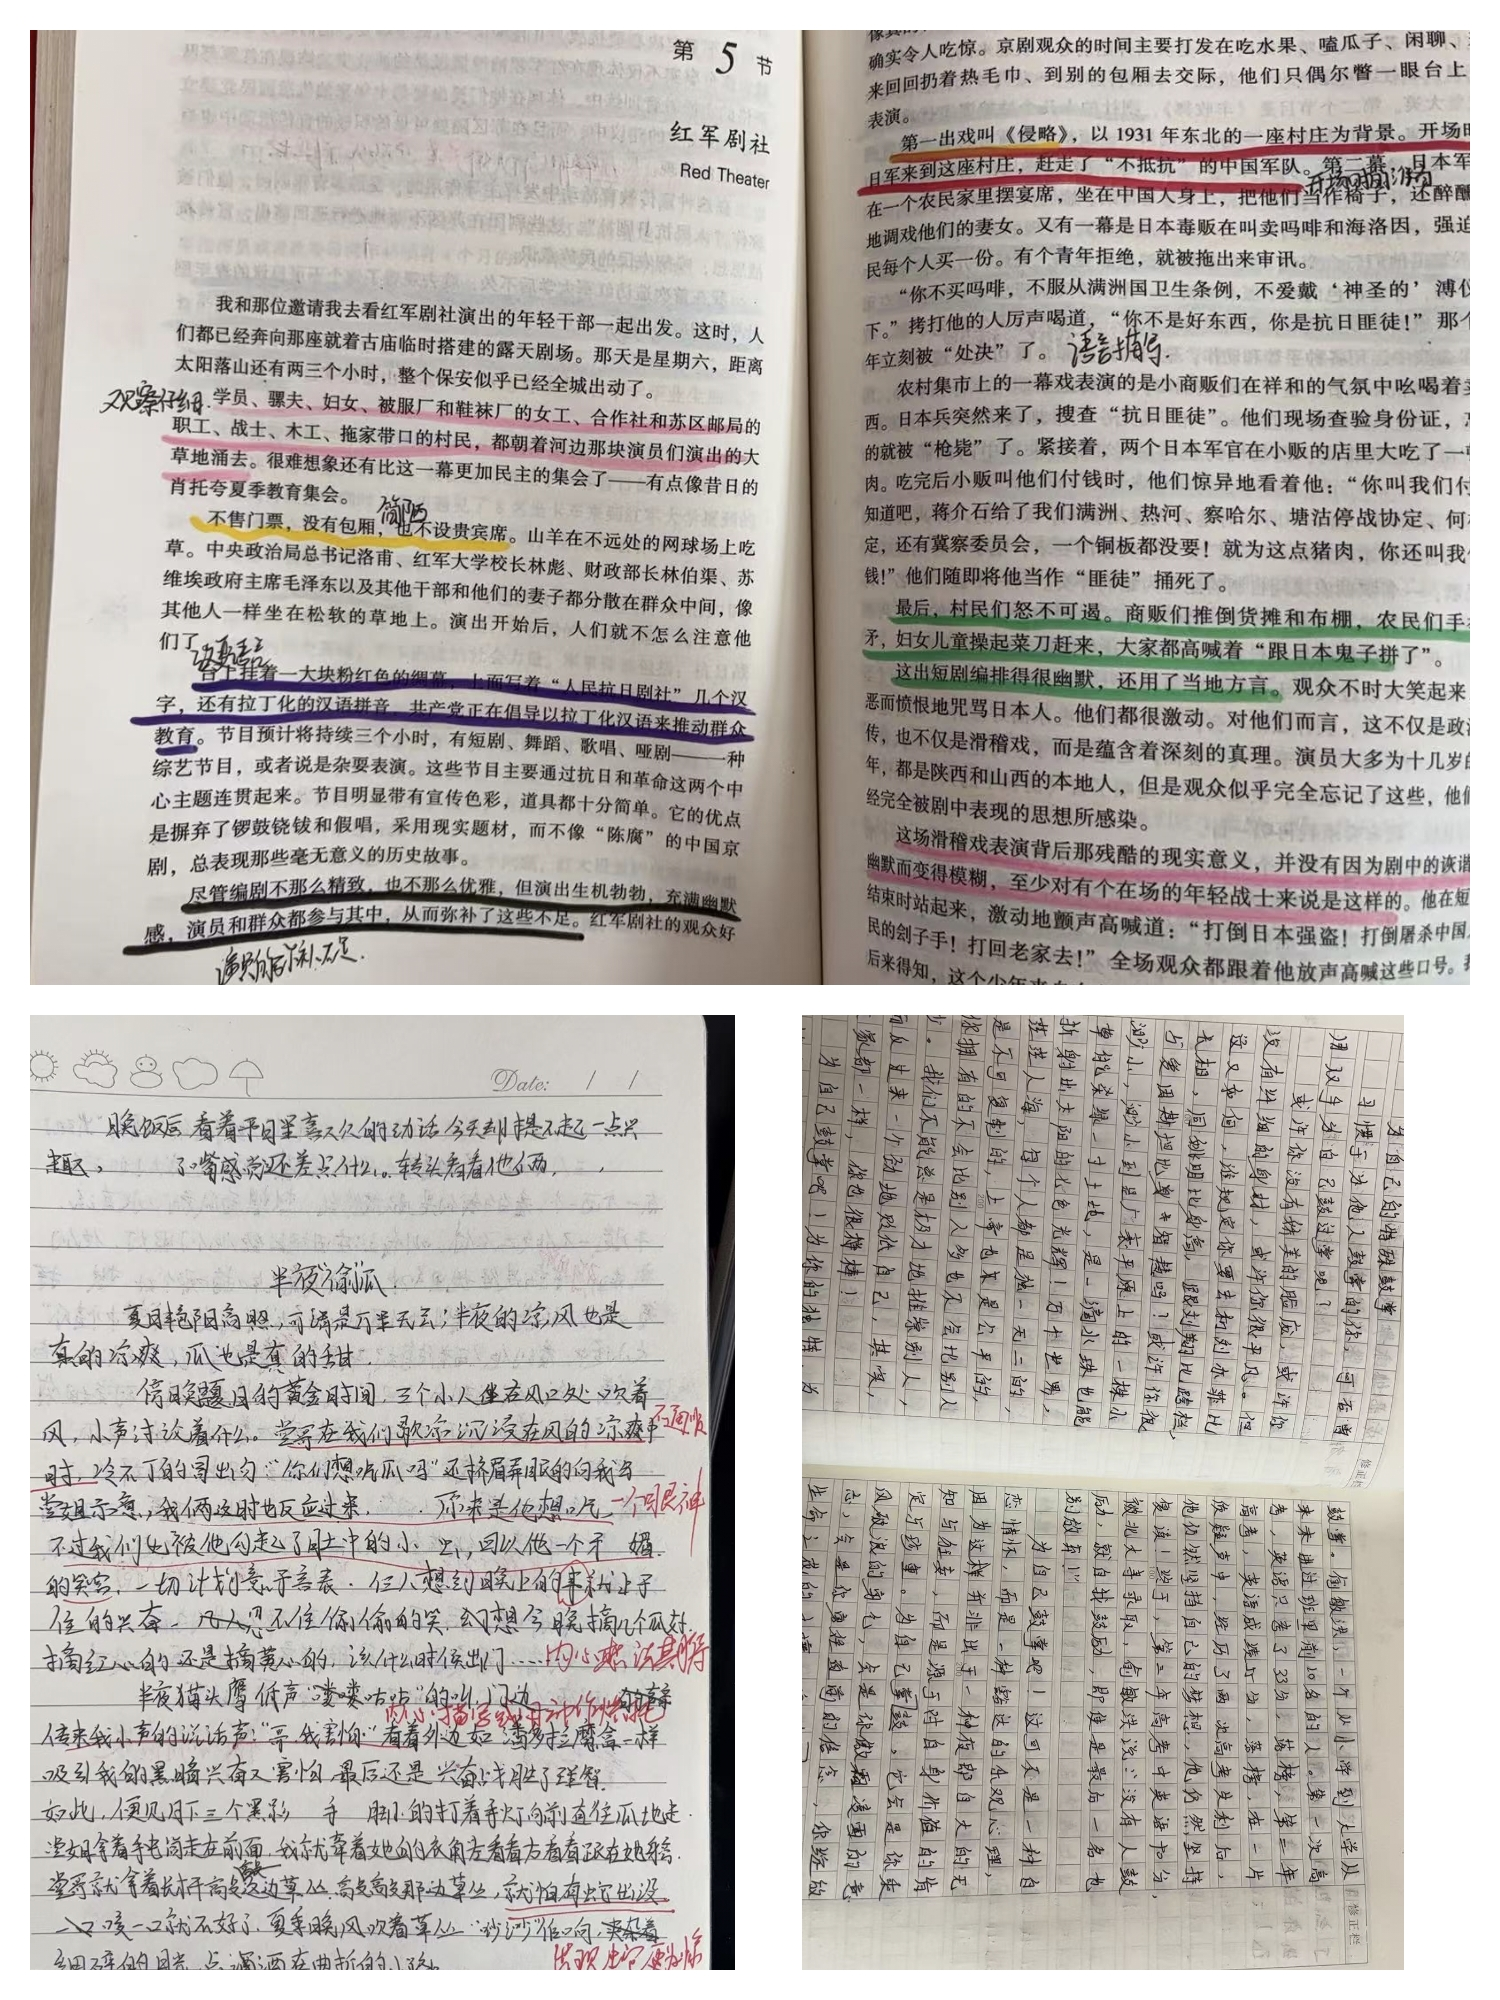 第 5 节
红军剧社
Red Theater
我和那位邀请我去看红军剧社演出的年轻干部一起出发。这时，人
们都已经奔向那座就着古庙临时搭建的露天剧场。那天是星期六，距离
太阳落山还有两三个小时，整个保安似乎已经全城出动了。
观察仔细
学员、骡夫、妇女、被服厂和鞋袜厂的女工、合作社和苏区邮局的
职工、战士、木工、拖家带口的村民，都朝着河边那块演员们演出的大
草地涌去。很难想象还有比这一幕更加民主的集会了——有点像昔日的
肖托夸夏季教育集会。
简陋
不售门票，没有包厢，也不设贵宾席。山羊在不远处的网球场上吃
草。中央政治局总书记洛甫、红军大学校长林彪、财政部长林伯渠、苏
维埃政府主席毛泽东以及其他干部和他们的妻子都分散在群众中间，像
其他人一样坐在松软的草地上。演出开始后，人们就不怎么注意他
们了
台上挂着一大块粉红色的绸幕，上面写着“人民抗日剧社”几个汉
字，还有拉丁化的汉语拼音，共产党正在倡导以拉丁化汉语来推动群众
教育。节目预计将持续三个小时，有短剧、舞蹈、歌唱、哑剧——一种
综艺节目，或者说是杂耍表演。这些节目主要通过抗日和革命这两个中
心主题连贯起来。节目明显带有宣传色彩，道具都十分简单。它的优点
是摒弃了锣鼓铙钹和假唱，采用现实题材，而不像“陈腐”的中国京
剧，总表现那些毫无意义的历史故事。
尽管编剧不那么精致，也不那么优雅，但演出生机勃勃，充满幽默
感，演员和群众都参与其中，从而弥补了这些不足。红军剧社的观众好
确实令人吃惊。京剧观众的时间主要打发在吃水果、嗑瓜子、闲聊、
来回回扔着热毛巾、到别的包厢去交际，他们只偶尔瞥一眼台上
表演。
第一出戏叫《侵略》，以 1931 年东北的一座村庄为背景。开场时
日军来到这座村庄，赶走了“不抵抗”的中国军队。第二幕，日本军
在一个农民家里摆宴席，坐在中国人身上，把他们当作椅子，还醉醺
地调戏他们的妻女。又有一幕是日本毒贩在叫卖吗啡和海洛因，强迫
民每个人买一份。有个青年拒绝，就被拖出来审讯。
“你不买吗啡，不服从满洲国卫生条例，不爱戴‘神圣的’溥仪
下。”拷打他的人厉声喝道，“你不是好东西，你是抗日匪徒！”那个
年立刻被“处决”了。
语言描写
农村集市上的一幕戏表演的是小商贩们在祥和的气氛中吆喝着卖
西。日本兵突然来了，搜查“抗日匪徒”。他们现场查验身份证，忘
的就被“枪毙”了。紧接着，两个日本军官在小贩的店里大吃了一
肉。吃完后小贩叫他们付钱时，他们惊异地看着他：“你叫我们付
知道吧，蒋介石给了我们满洲、热河、察哈尔、塘沽停战协定、何梅
定，还有冀察委员会，一个铜板都没要！就为这点猪肉，你还叫我
钱！”他们随即将他当作“匪徒”捅死了。
最后，村民们怒不可遏。商贩们推倒货摊和布棚，农民们手
矛，妇女儿童操起菜刀赶来，大家都高喊着“跟日本鬼子拼了”。
这出短剧编排得很幽默，还用了当地方言。观众不时大笑起来
恶而愤恨地咒骂日本人。他们都很激动。对他们而言，这不仅是政
传，也不仅是滑稽戏，而是蕴含着深刻的真理。演员大多为十几岁的
年，都是陕西和山西的本地人，但是观众似乎完全忘记了这些，他们
经完全被剧中表现的思想所感染。
这场滑稽戏表演背后那残酷的现实意义，并没有因为剧中的诙谐
幽默而变得模糊，至少对有个在场的年轻战士来说是这样的。他在短
结束时站起来，激动地颤声高喊道：“打倒日本强盗！打倒屠杀中国人
民的刽子手！打回老家去！”全场观众都跟着他放声高喊这些口号。我
后来得知，这个少年来自
Date: / /
晚饭后看着平日里喜欢的动话今天却提不起一点兴
趣， 了嘴感觉还差点什么。转头看看他俩，
半夜“偷”瓜
夏日艳阳高照，可谓是万里无云；半夜的凉风也是
真的凉爽，瓜也是真的甜。
傍晚夏日的黄金时间，三个小人坐在风口处吹着
风，小声讨论着什么。堂哥在我们歇凉沉浸在风的凉爽中
不通顺
时，冷不丁的冒出句“你们想吃瓜吗”还挤眉弄眼的向我与
堂姐示意，我俩这时也反应过来， 原来是他想吃
一个眼神
不过我们也被他勾起了肚中的小 虫，回以他一个 媚
的笑容，一切计划意于言表。 想到晚上的 就止不
住的兴奋。 几人忍不住偷偷的笑，幻想今晚摘几个瓜好，
摘红心的还是摘黄心的，该什么时候出门……
半夜猫头鹰低声“喽喽咕咕”的叫，门边
传来我小声的说话声：“哥，我害怕”看着外边如潘多拉魔盒一样
吸引我的黑暗兴奋又害怕，最后还是兴奋战胜了理智。
如此，便见月下三个黑影 手 脚的打着手灯向前直往瓜地走。
堂姐拿着手电筒走在前面，我就牵着她的衣角左看看右看看跟在她后。
堂哥就拿着棍打打这边草丛，打打那边草丛，就怕有蛇出没
咬一口就不好了。夏季晚风吹着草丛“沙沙”作响，夹杂着
细碎的月光，点点洒在曲折的小路
为自己的特殊鼓掌
习惯于为他人鼓掌的你，可否曾
用双手为自己鼓过掌呢？
或许你没有姣美的脸庞，或许你
没有纤细的身材，或许你很平凡。但
这又如何，谁规定你要去和刘亦菲比
长相，同姚明比身高，跟刘翔比跨栏，
与爱因斯坦比身世智慧吗？或许你很
渺小，渺小到是广袤平原上的一株小
草能染绿一寸土地，是一滴水珠也能
折射出太阳的七色光辉！万千世界，
茫茫人海，每个人都是独一无二的，
是不可复制的，上帝也是公平的，
你拥有的不会比别人多也不会比别人
少。我们不能总是仰才地推崇别人，
而反过来一个劲地贬低自己，其实，
家都一样，你也很棒棒！
为自己鼓掌吧！为你的独特，为
修正栏
鼓掌。俞敏洪，一个从小学到大学从
来未进过班里前10名的人。第一次高
考，英语只考了33分，落榜，第二年
高考，英语成绩55分，落榜，在一片
质疑声中，经历了两次高考失利后，
他仍然坚持自己的梦想，他仍然坚持
复读！终于，第三年高考中英语95分，
被北大录取，俞敏洪说：没有人鼓
励，就自我鼓励，即使是最后一名也
别放弃！
为自己鼓掌吧！这可不是一种自
恋情怀，而是一种豁达的乐观心理，
因为这样并非出于一种夜郎自大的无
知与狂妄，而是源于对自身价值的肯
定与珍重。为自己掌鼓，它会是你乘
风破浪的勇气，会是你傲视凌云的意
志，会是你勇往直前的信念，你经的
修正栏